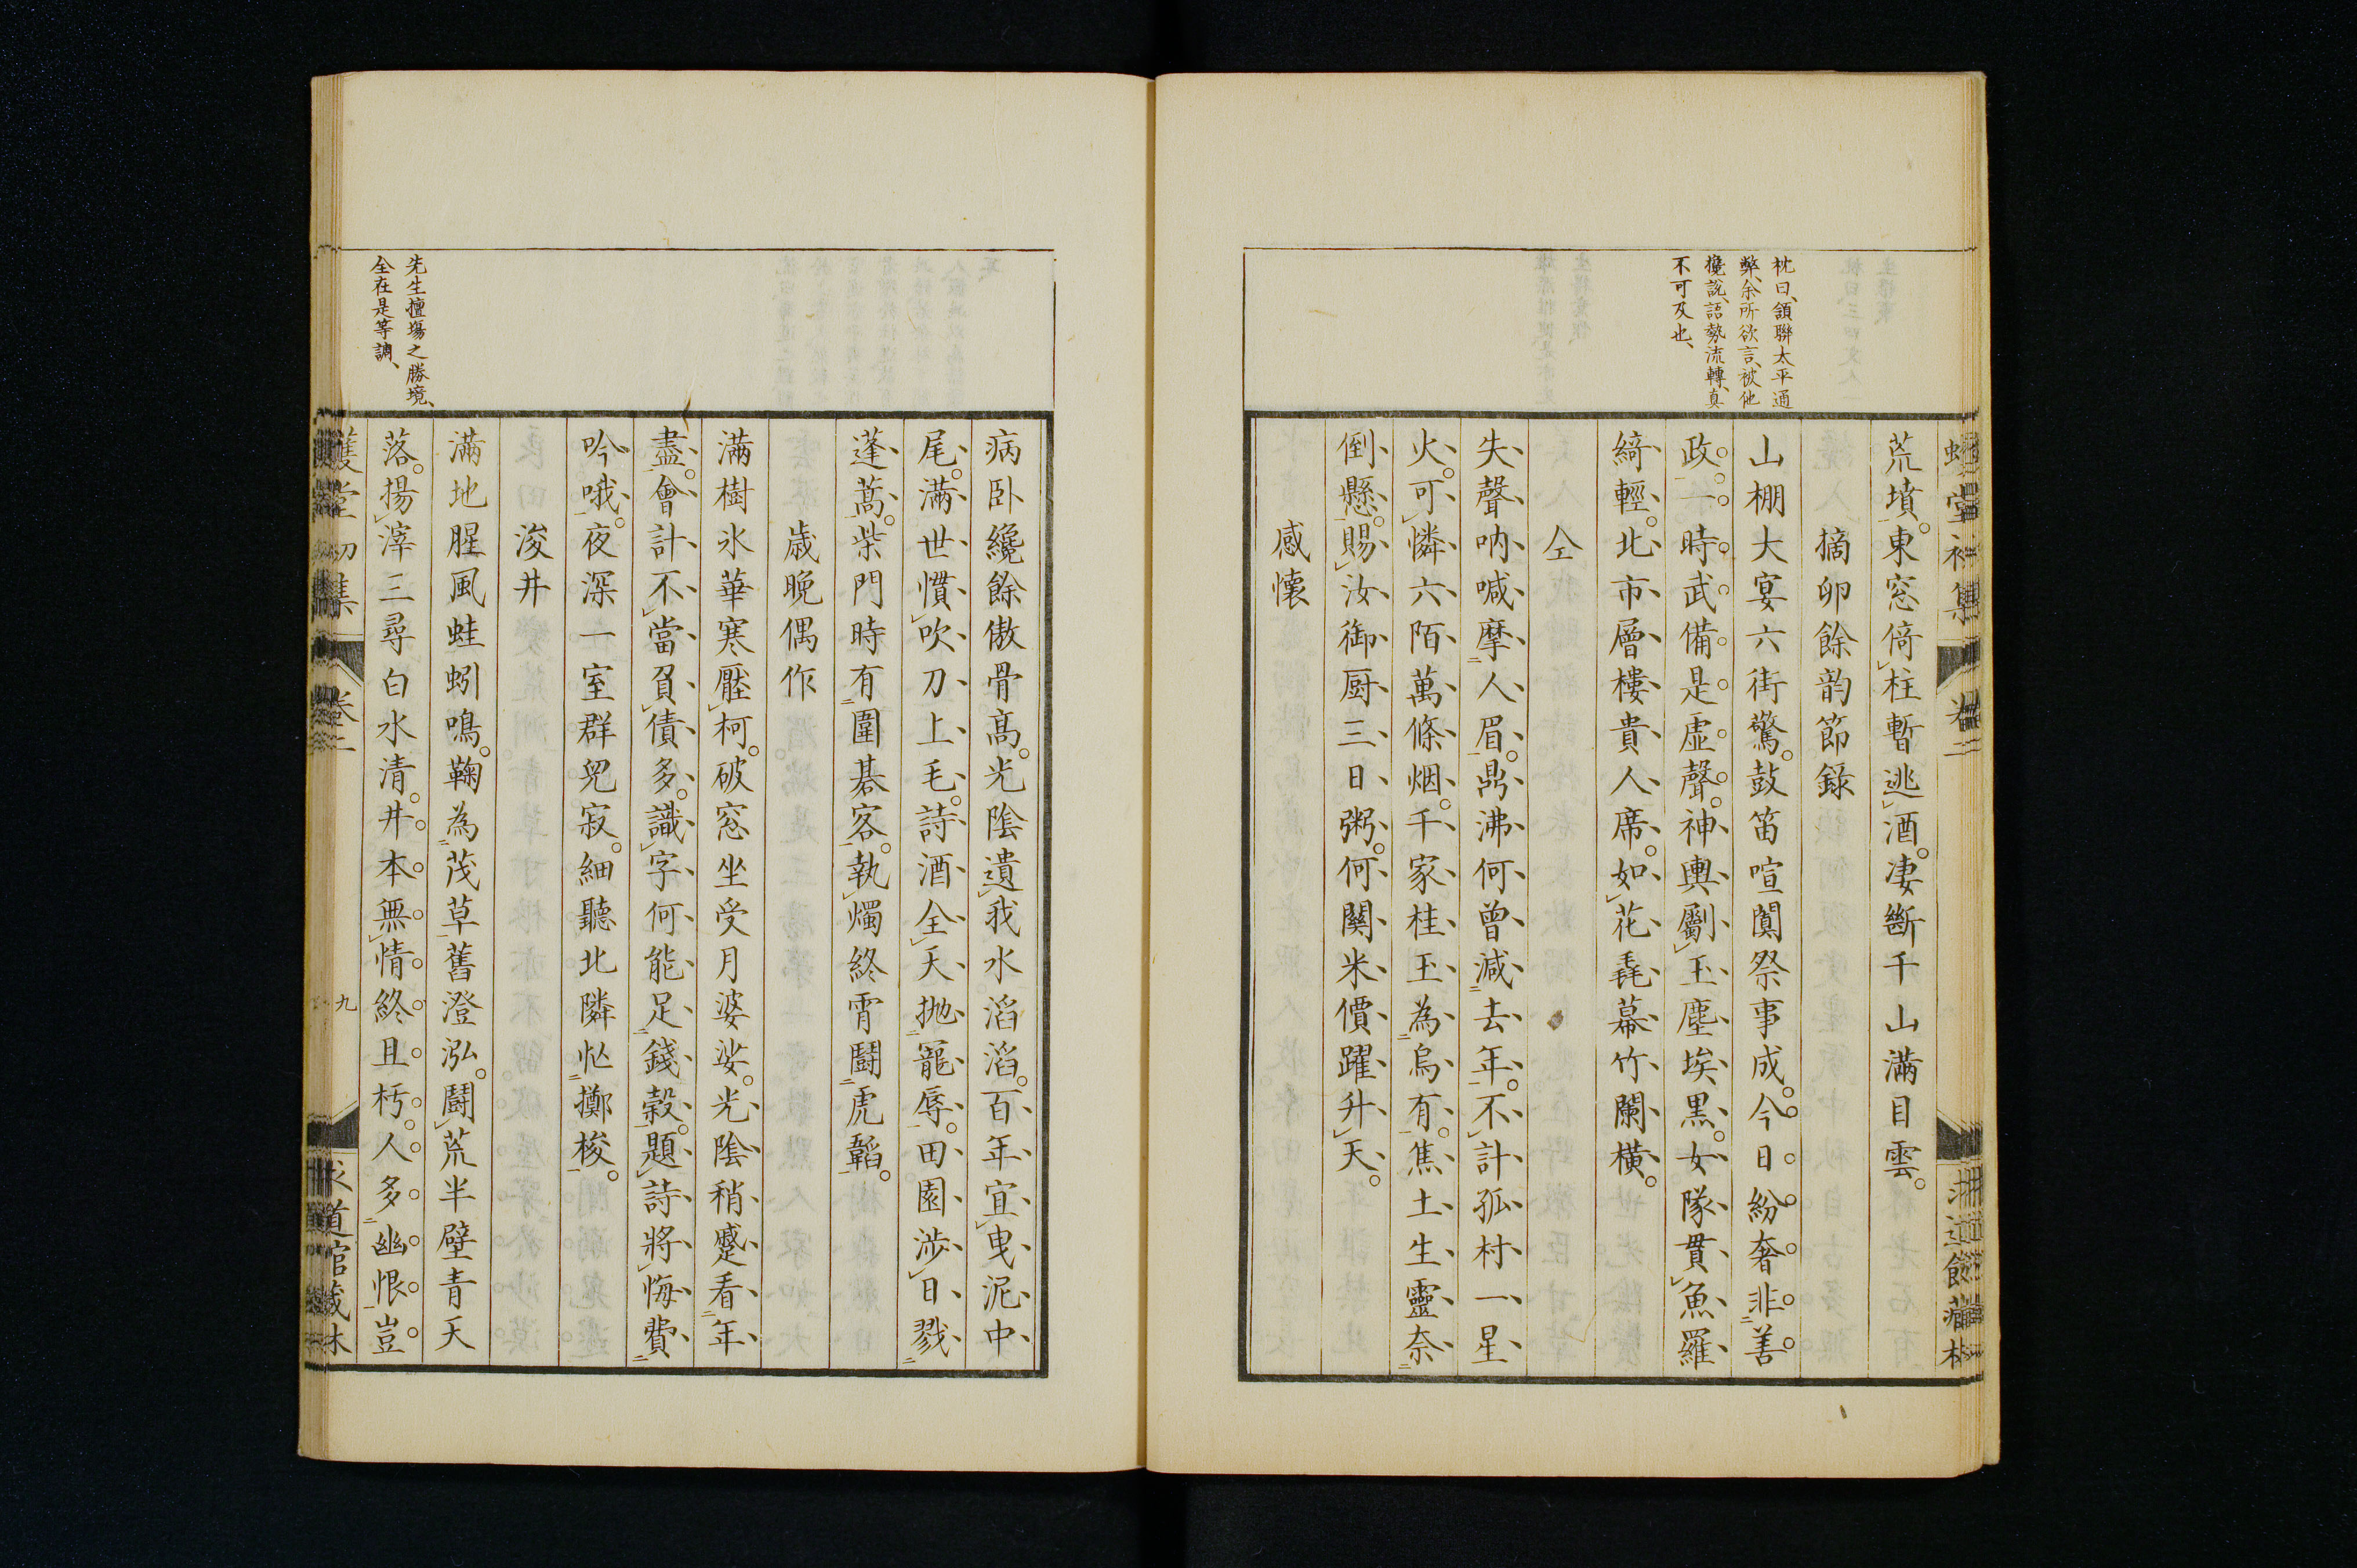 枕曰、頷聯太平通
弊、余所欲言、被他
攙說、語勢流轉、真
不可及也、
荒墳。東窓倚柱暫逃酒。凄斷千山滿目雲。
摘卵餘韵節錄
山棚大宴六街驚。鼓笛喧闐祭事成。今日紛奢非善
政。一時武備是虛聲。神輿劚玉塵埃黑。女隊貫魚羅
綺輕。北市層樓貴人席。如花毳幕竹闌橫。
仝
失聲吶喊摩人眉。鼎沸何曾減去年。不計孤村一星
火。可憐六陌萬條烟。千家桂玉為烏有。焦土生靈奈
倒懸。賜汝御厨三日粥。何關米價躍升天。
感懷
病卧纔餘傲骨髙。光陰遺我水滔滔。百年宜曳泥中
尾。滿世慣吹刀上毛。詩酒全天抛寵辱。田園涉日戮
蓬蒿。柴門時有圍碁客。執燭終霄鬪虎韜。
歲晚偶作
滿樹氷華寒壓柯。破窓坐受月婆娑。光陰稍蹙看年
盡。會計不當負債多。識字何能足錢穀。題詩將悔費
吟哦。夜深一室群兒寂。細聽北隣忙擲梭。
浚井
滿地腥風蛙蚓鳴。鞠為茂草舊澄泓。鬪荒半壁青天
落。揚滓三尋白水清。井本無情終且朽。人多幽恨豈
先生擅塲之勝境、
全在是等調、
卷二
九
道館藏